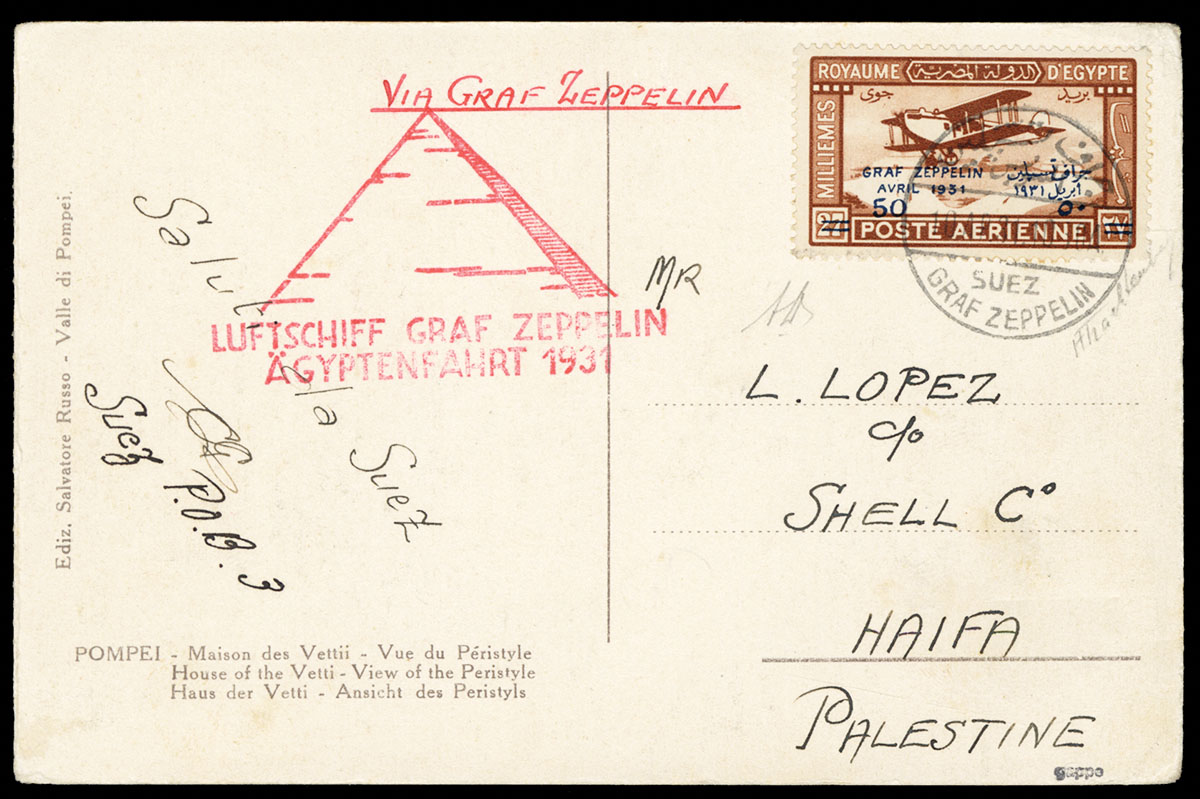 VIA GRAF ZEPPELIN
ROYAUME الدولة المصرية D'EGYPTE
جوى بريد
MILLIEMES
GRAF ZEPPELIN جراف تسبلين
AVRIL 1931 ابريل ١٩٣١
50 ٥٠
27 POSTE AÉRIENNE ٢٧
SUEZ
GRAF ZEPPELIN
LUFTSCHIFF GRAF ZEPPELIN
ÄGYPTENFAHRT 1931
MR
Saluti d/a Suez
P.O.B. 3
Suez
L. LOPEZ
c/o
SHELL Cº
HAIFA
PALESTINE
Ediz. Salvatore Russo - Valle di Pompei.
POMPEI - Maison des Vettii - Vue du Péristyle
House of the Vetti - View of the Peristyle
Haus der Vetti - Ansicht des Peristyls